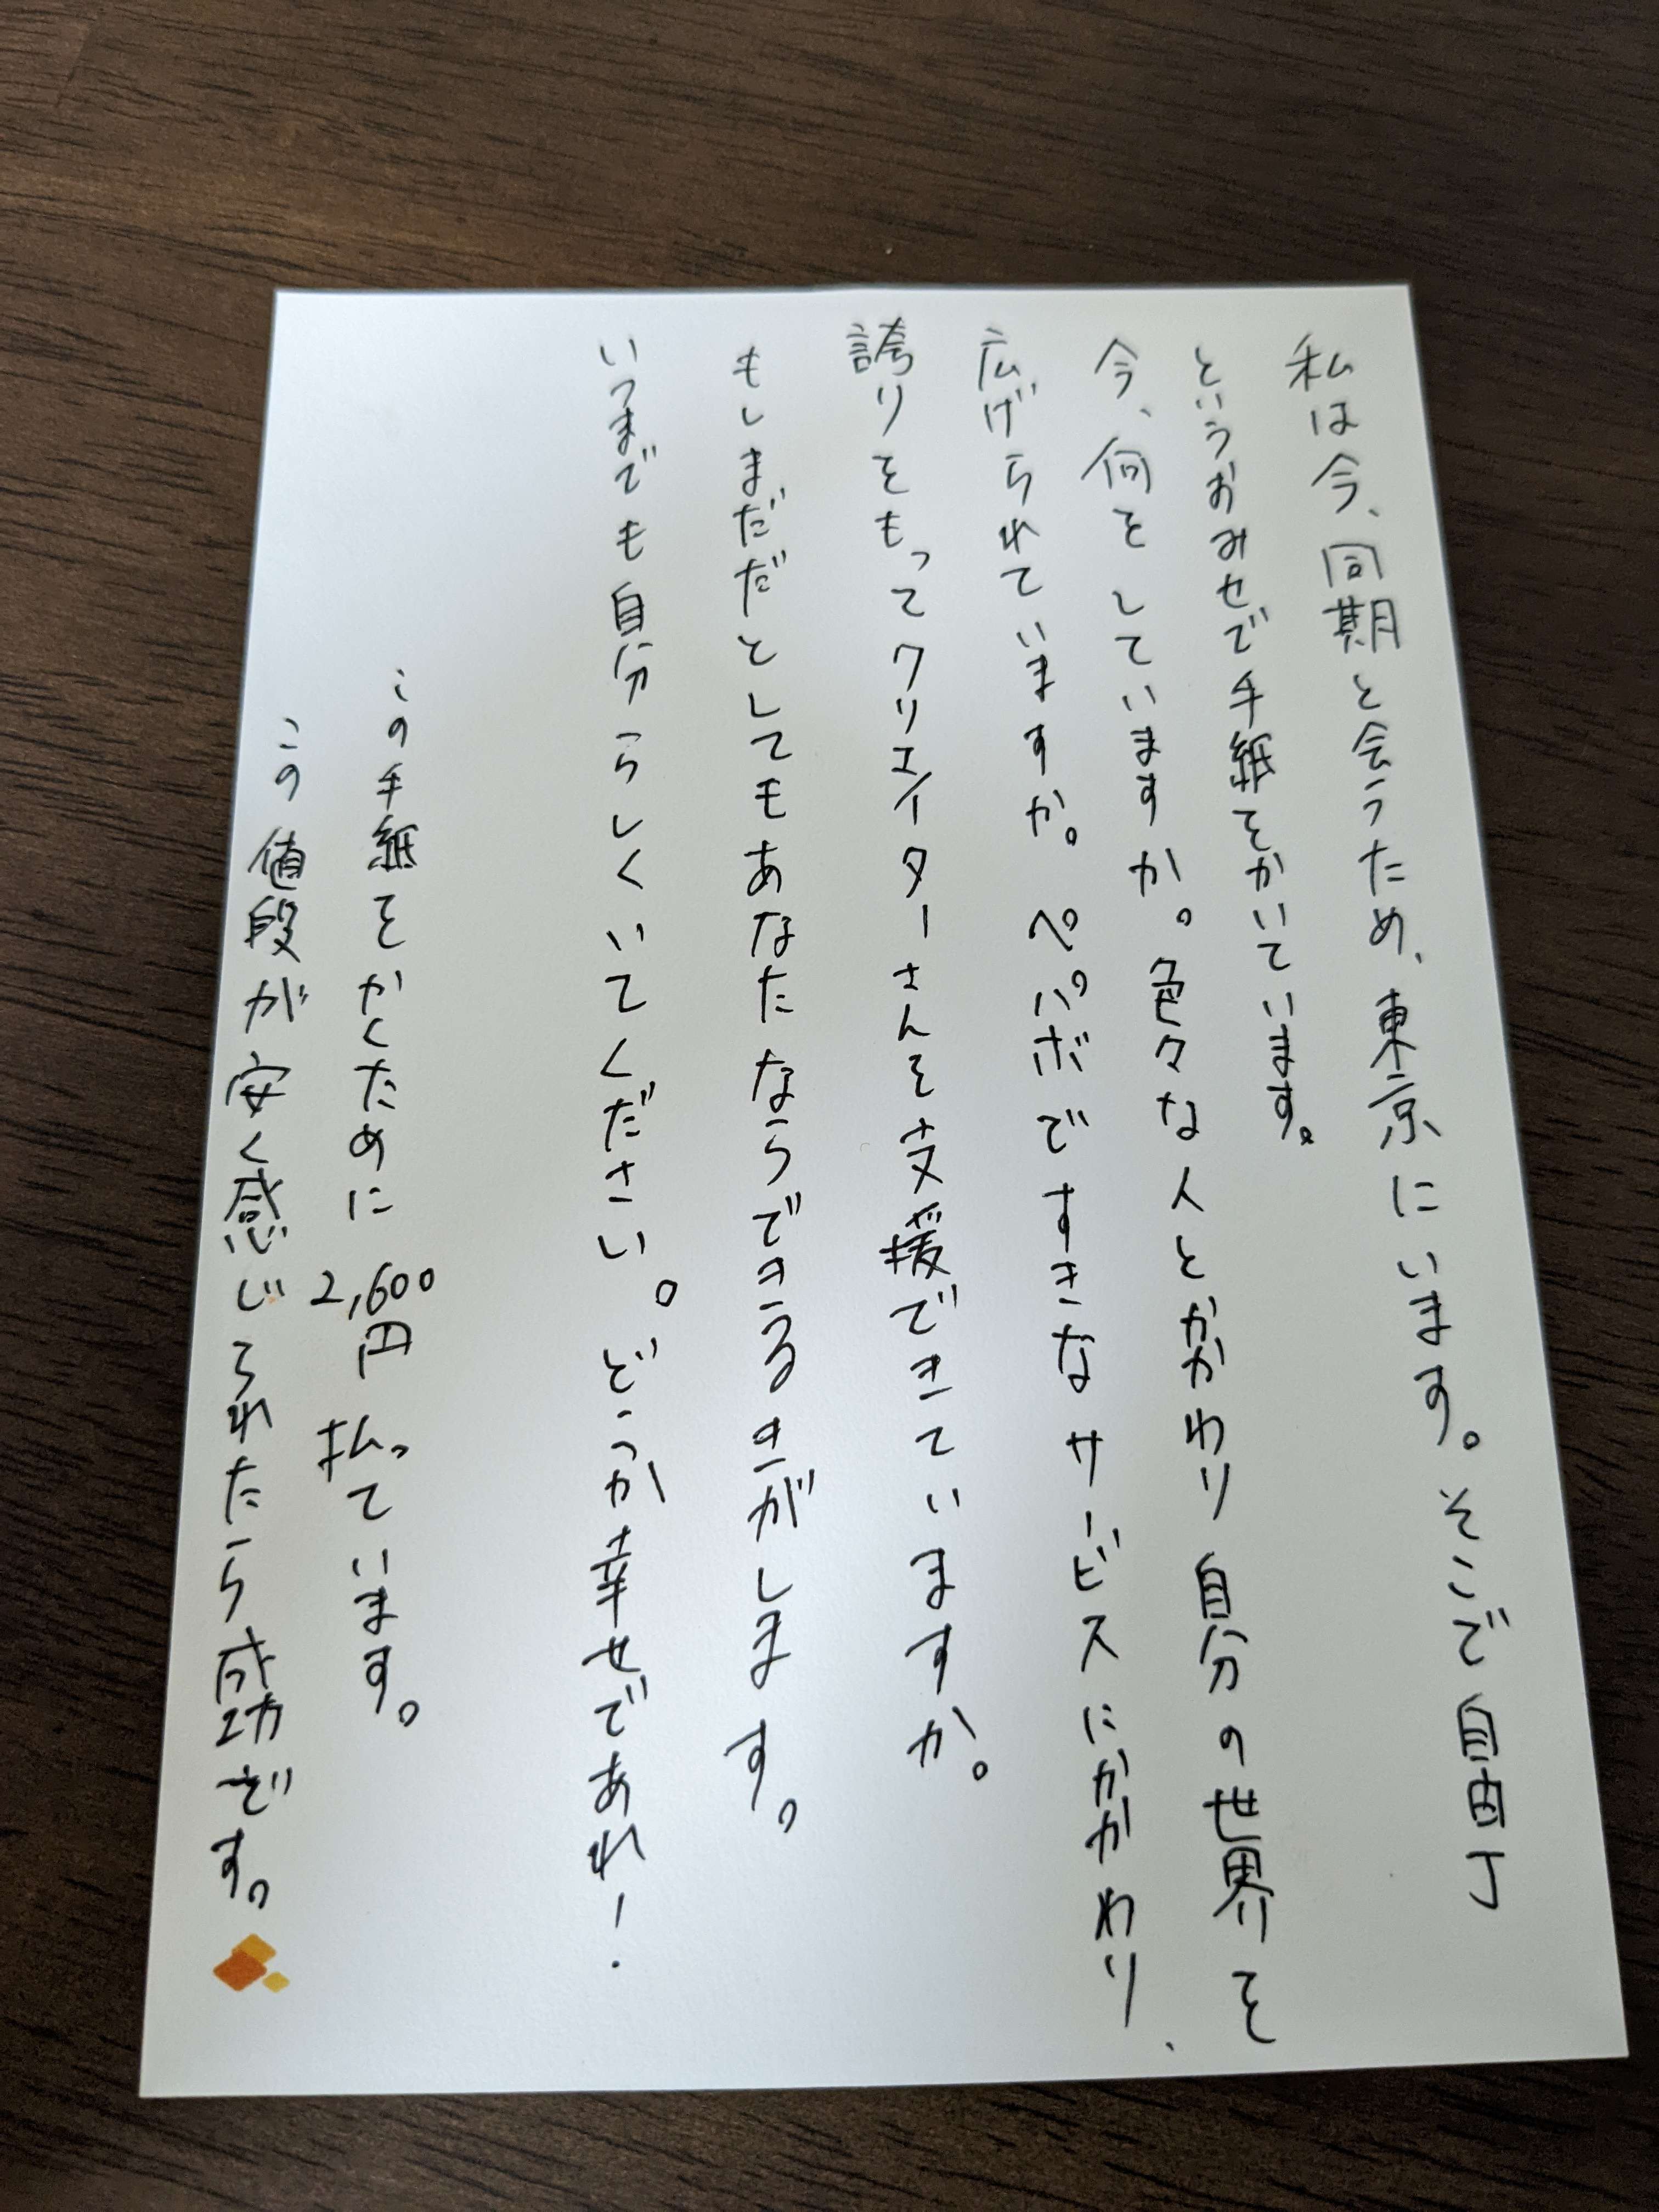 私は今、同期と会うため、東京にいます。そこで自由丁
というおみせで手紙をかいています。
今、何をしていますか。色々な人とかかわり自分の世界を
広げられていますか。ペパボですきなサービスにかかわり、
誇りをもってクリエイターさんを支援できていますか。
もしまだだとしてもあなたならできるきがします。
いつまでも自分らしくいてください。どうか幸せであれ!
この手紙をかくために2,600円払っています。
この値段が安く感じられたら成功です。